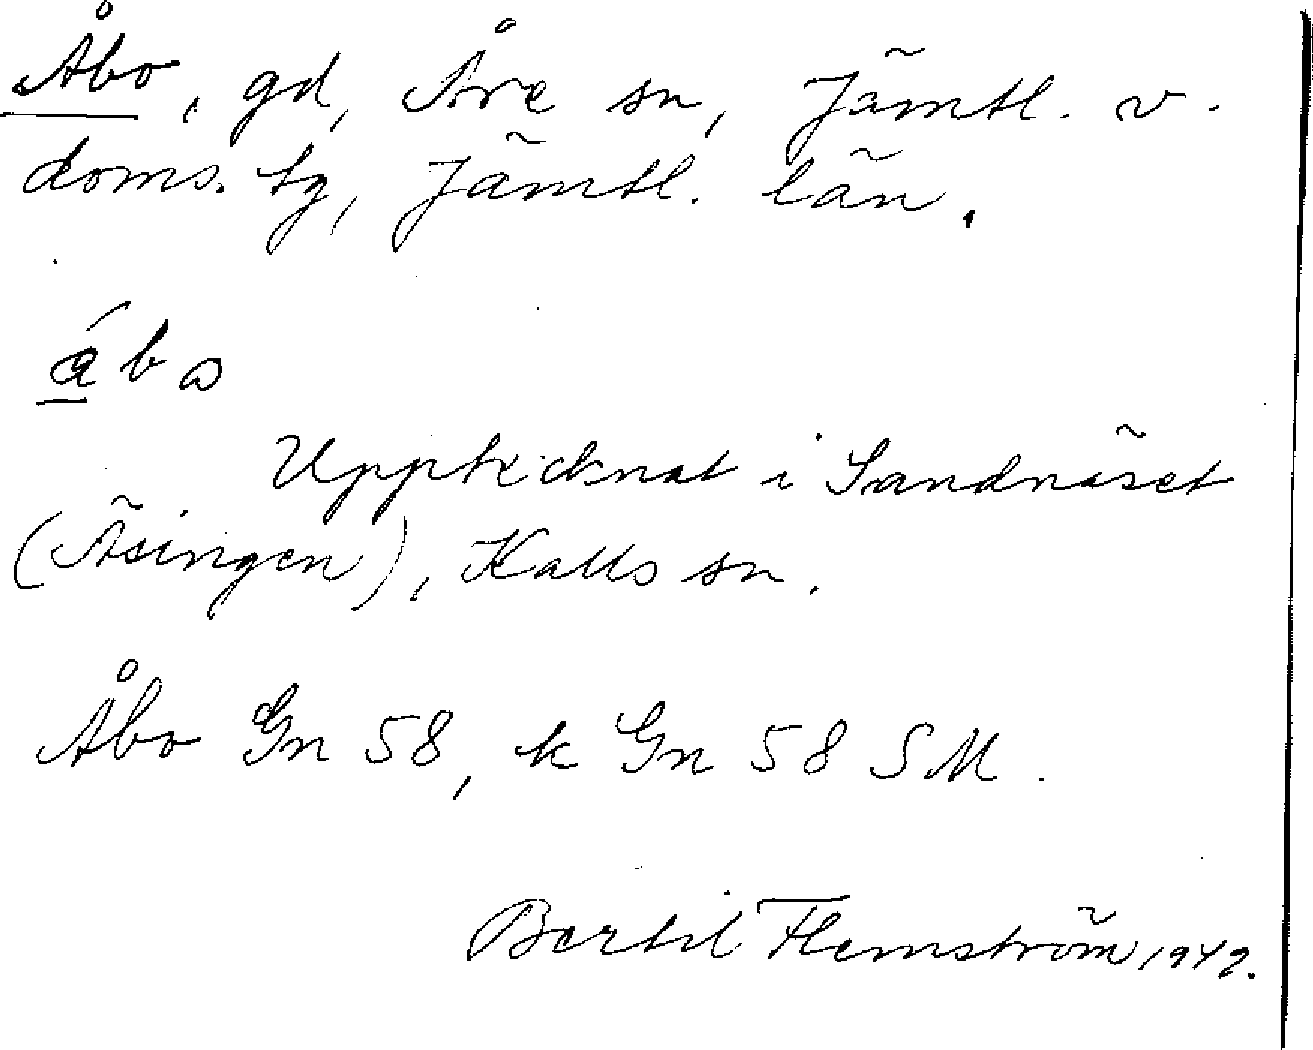 Åbo, gd, Åre sn, Jämtl. v.
doms. tg, Jämtl. län.
Upptecknat i Sandnäset
(Äsingen), Kalls sn.
Åbo Gn 58, k Gn 58 SM.
Bertil Flemström 1942.